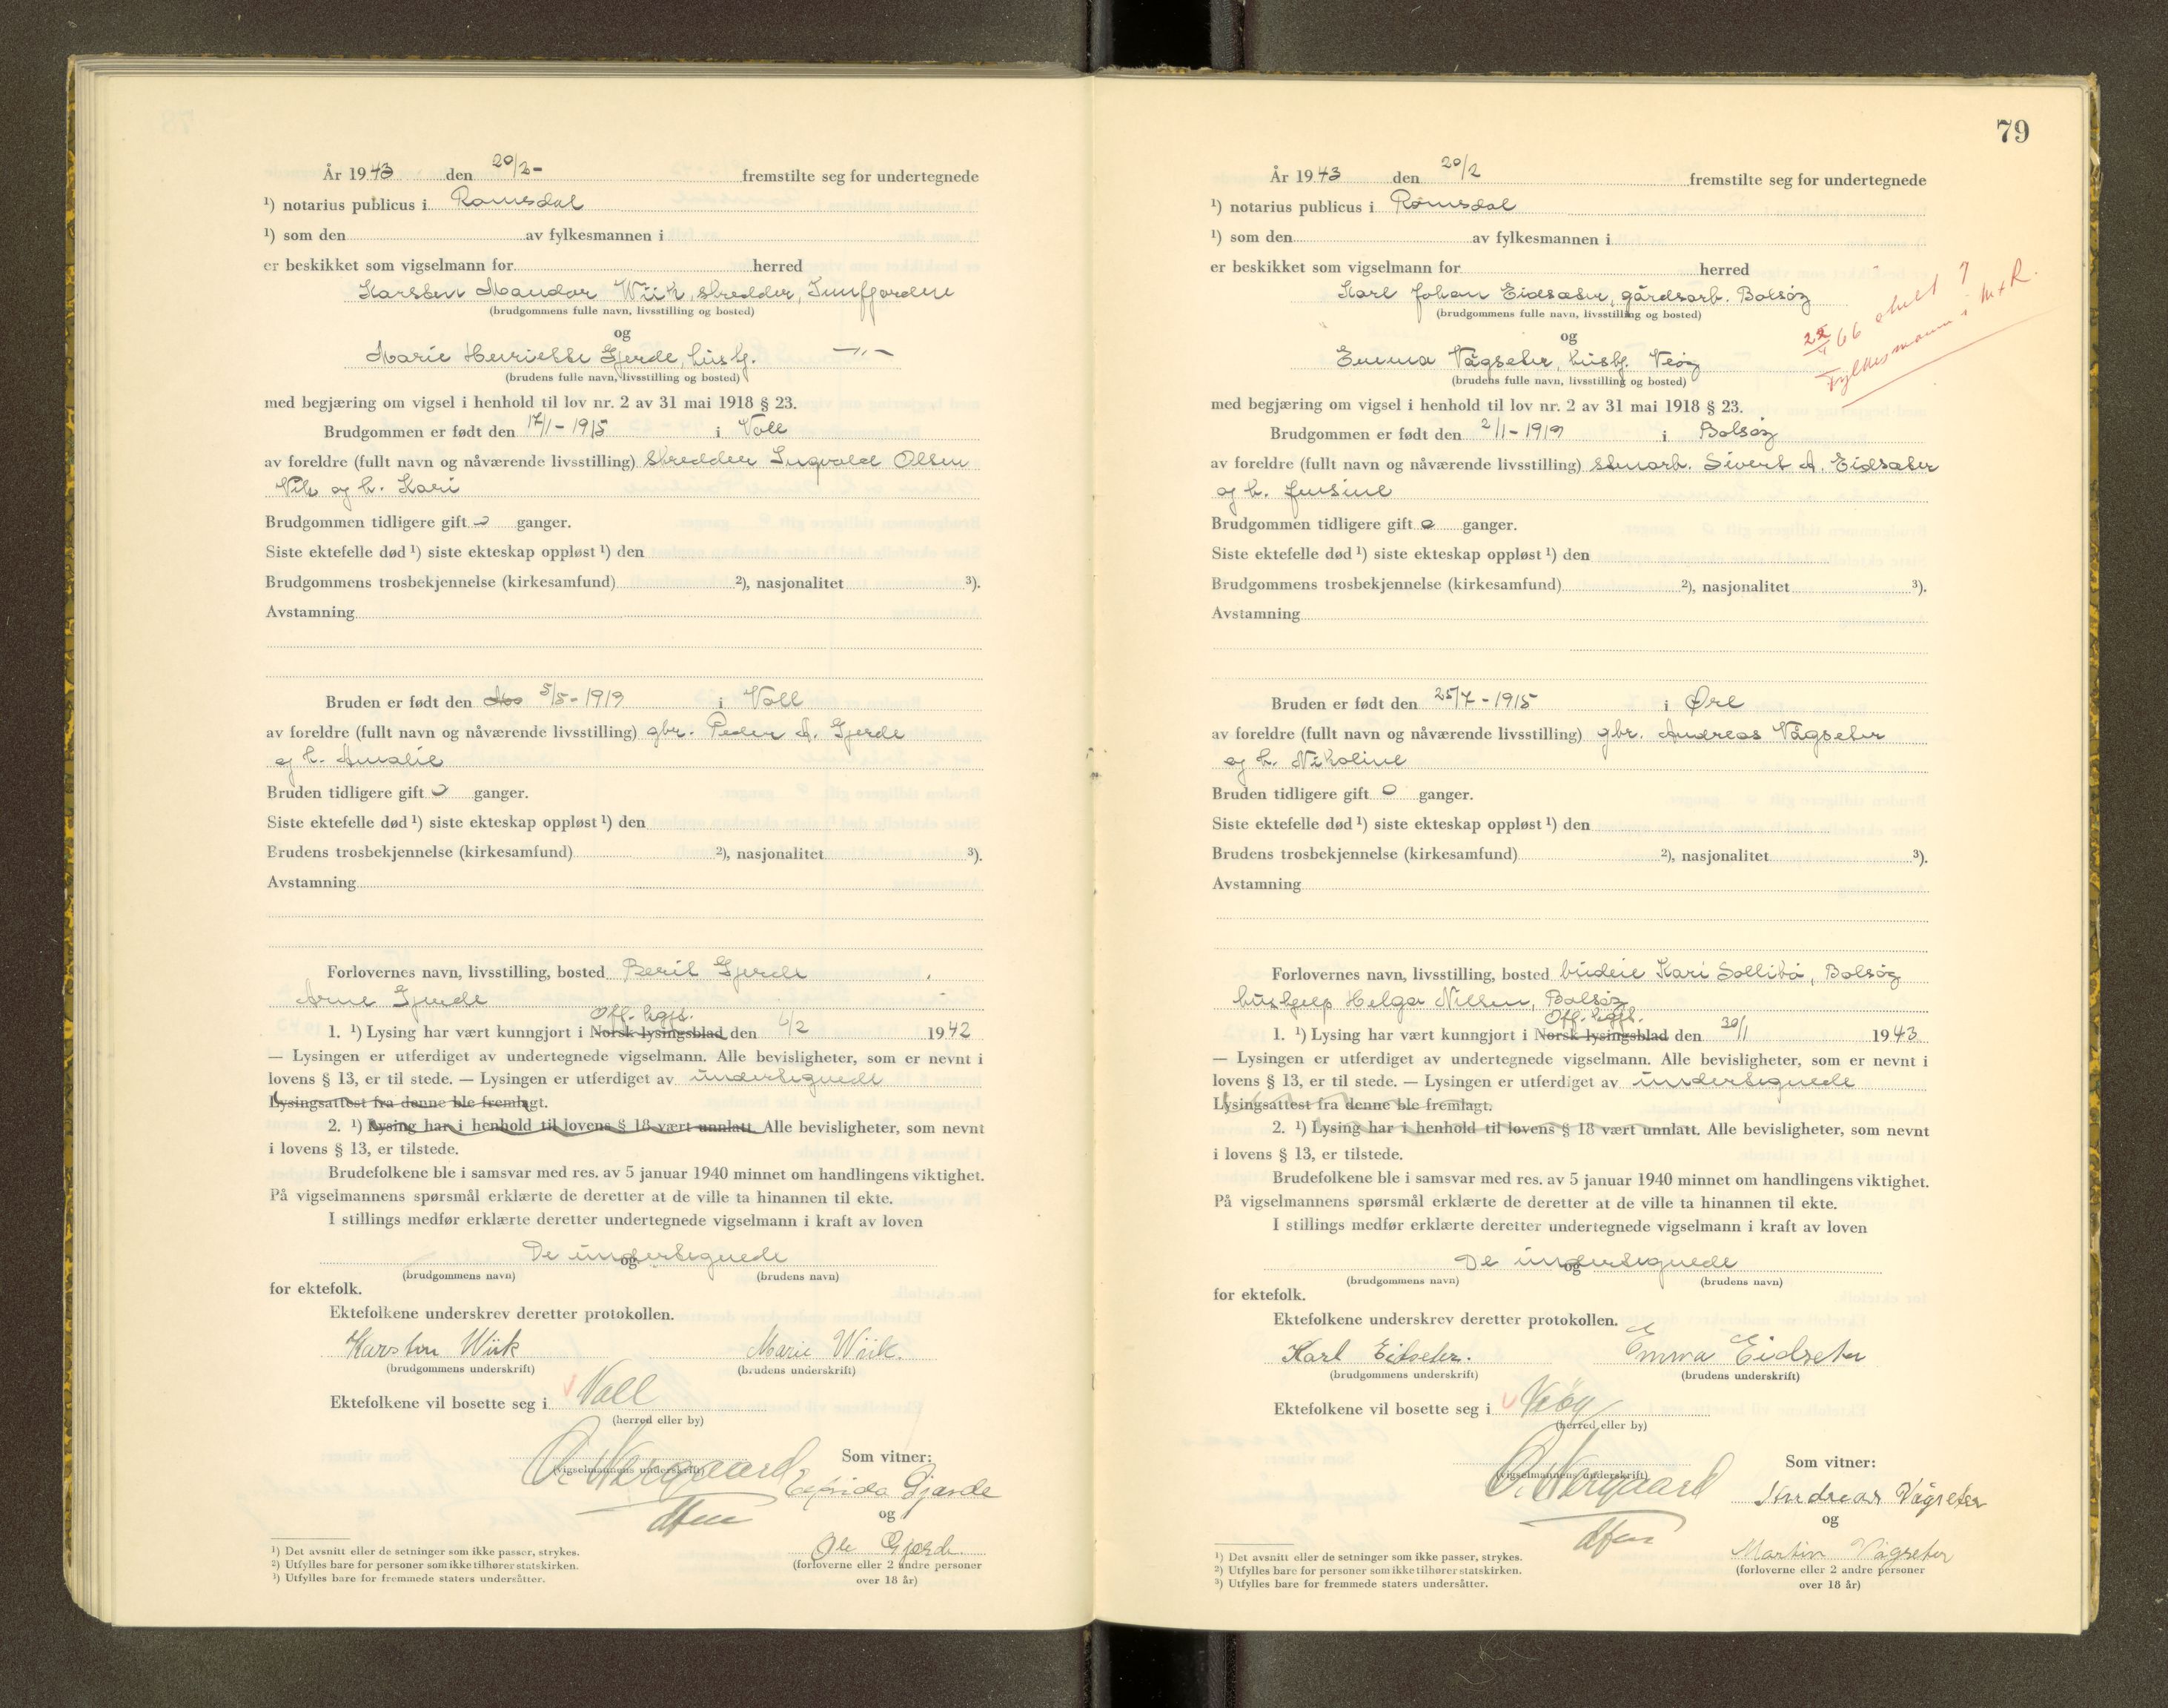 År 1943 den 20/2- fremstilte seg for undertegnede
¹) notarius publicus i Romsdal
¹) som den av fylkesmannen i
er beskikket som vigselmann for herred
Karsten Mandor Wiik, skredder, Innfjorden
(brudgommens fulle navn, livsstilling og bosted)
og
Marie Henriette Gjerde, hushj. —"—
(brudens fulle navn, livsstilling og bosted)
med begjæring om vigsel i henhold til lov nr. 2 av 31 mai 1918 § 23.
Brudgommen er født den 17/1-1915 i Voll
av foreldre (fullt navn og nåværende livsstilling) skredder Ingvald Olsen
Vik og h. Kari
Brudgommen tidligere gift 0 ganger.
Siste ektefelle død ¹) siste ekteskap oppløst ¹) den
Brudgommens trosbekjennelse (kirkesamfund) ²), nasjonalitet ³).
Avstamning
Bruden er født den 5/5-1919 i Voll
av foreldre (fullt navn og nåværende livsstilling) gbr. Peder A. Gjerde
og h. Amalie
Bruden tidligere gift 0 ganger.
Siste ektefelle død ¹) siste ekteskap oppløst ¹) den
Brudens trosbekjennelse (kirkesamfund) ²), nasjonalitet ³).
Avstamning
Forlovernes navn, livsstilling, bosted Berit Gjerde
Arne Gjerde
Off. kgjt.
1. ¹) Lysing har vært kunngjort i Norsk lysingsblad den 6/2 1942
— Lysingen er utferdiget av undertegnede vigselmann. Alle bevisligheter, som er nevnt i
lovens § 13, er til stede. — Lysingen er utferdiget av undertegnede
Lysingsattest fra denne ble fremlagt.
2. ¹) Lysing har i henhold til lovens § 18 vært unnlatt. Alle bevisligheter, som nevnt
i lovens § 13, er tilstede.
Brudefolkene ble i samsvar med res. av 5 januar 1940 minnet om handlingens viktighet.
På vigselmannens spørsmål erklærte de deretter at de ville ta hinannen til ekte.
I stillings medfør erklærte deretter undertegnede vigselmann i kraft av loven
De undertegnede
og
(brudgommens navn) (brudens navn)
for ektefolk.
Ektefolkene underskrev deretter protokollen.
Karsten Wiik Marie Wiik.
(brudgommens underskrift) (brudens underskrift)
Ektefolkene vil bosette seg i Voll
(herred eller by)
O. Norgaard Som vitner:
(vigselmannens underskrift)
Gjærde
dfm og
Ole Gjærde
(forloverne eller 2 andre personer
over 18 år)
¹) Det avsnitt eller de setninger som ikke passer, strykes.
²) Utfylles bare for personer som ikke tilhører statskirken.
³) Utfylles bare for fremmede staters undersåtter.
79
År 1943 den 20/2 fremstilte seg for undertegnede
¹) notarius publicus i Romsdal
¹) som den av fylkesmannen i
er beskikket som vigselmann for herred
Karl Johan Eidsæter, gårdsarb. Bolsøy
(brudgommens fulle navn, livsstilling og bosted)
og
Emma Vågseter, hushj. Veøy
(brudens fulle navn, livsstilling og bosted)
Fylkesmann i M+R.
med begjæring om vigsel i henhold til lov nr. 2 av 31 mai 1918 § 23.
Brudgommen er født den 2/1-1919 i Bolsøy
av foreldre (fullt navn og nåværende livsstilling) stenarb. Sivert A. Eidsæter
og h. Jensine
Brudgommen tidligere gift 0 ganger.
Siste ektefelle død ¹) siste ekteskap oppløst ¹) den
Brudgommens trosbekjennelse (kirkesamfund) ²), nasjonalitet ³).
Avstamning
Bruden er født den 25/7-1915 i Øre
av foreldre (fullt navn og nåværende livsstilling) gbr. Andreas Vågseter
og h. Nikoline
Bruden tidligere gift 0 ganger.
Siste ektefelle død ¹) siste ekteskap oppløst ¹) den
Brudens trosbekjennelse (kirkesamfund) ²), nasjonalitet ³).
Avstamning
Forlovernes navn, livsstilling, bosted budeie Kari Sollibø, Bolsøy
hushjelp Helga Nilsen, Bolsøy
Off. kgjt.
1. ¹) Lysing har vært kunngjort i Norsk lysingsblad den 30/1 1943
— Lysingen er utferdiget av undertegnede vigselmann. Alle bevisligheter, som er nevnt i
lovens § 13, er til stede. — Lysingen er utferdiget av undertegnede
Lysingsattest fra denne ble fremlagt.
2. ¹) Lysing har i henhold til lovens § 18 vært unnlatt. Alle bevisligheter, som nevnt
i lovens § 13, er tilstede.
Brudefolkene ble i samsvar med res. av 5 januar 1940 minnet om handlingens viktighet.
På vigselmannens spørsmål erklærte de deretter at de ville ta hinannen til ekte.
I stillings medfør erklærte deretter undertegnede vigselmann i kraft av loven
De undertegnede
og
(brudgommens navn) (brudens navn)
for ektefolk.
Ektefolkene underskrev deretter protokollen.
Karl Eidseter. Emma Eidseter
(brudgommens underskrift) (brudens underskrift)
Ektefolkene vil bosette seg i Veøy
(herred eller by)
O. Norgaard Som vitner:
(vigselmannens underskrift)
Andreas Vågseter
dfm og
Martin Vågseter
(forloverne eller 2 andre personer
over 18 år)
¹) Det avsnitt eller de setninger som ikke passer, strykes.
²) Utfylles bare for personer som ikke tilhører statskirken.
³) Utfylles bare for fremmede staters undersåtter.